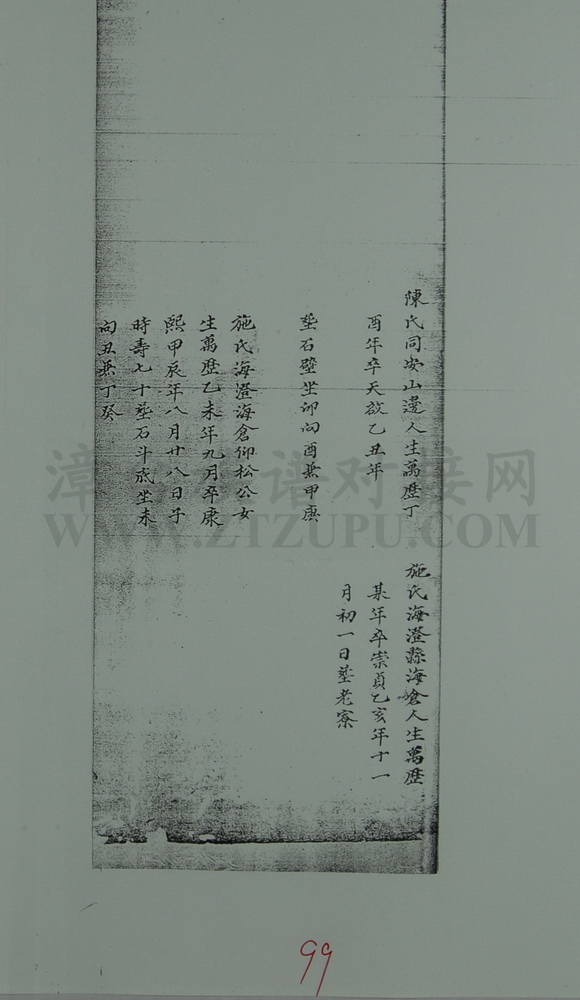 陳氏同安山邊人生萬歷丁
酉年卒天啟乙丑年
塟石壁坐卯向酉兼甲庚
施氏海澄海倉仰松公女
生萬歷乙未年九月卒康
熙甲辰年八月廿八日子
時壽七十塟石斗底坐未
向丑兼丁癸
施氏海澄縣海滄人生萬歷
某年卒崇貞乙亥年十一
月初一日塟老寮
漳州族谱对接网
WWW.ZTZUPU.COM
99